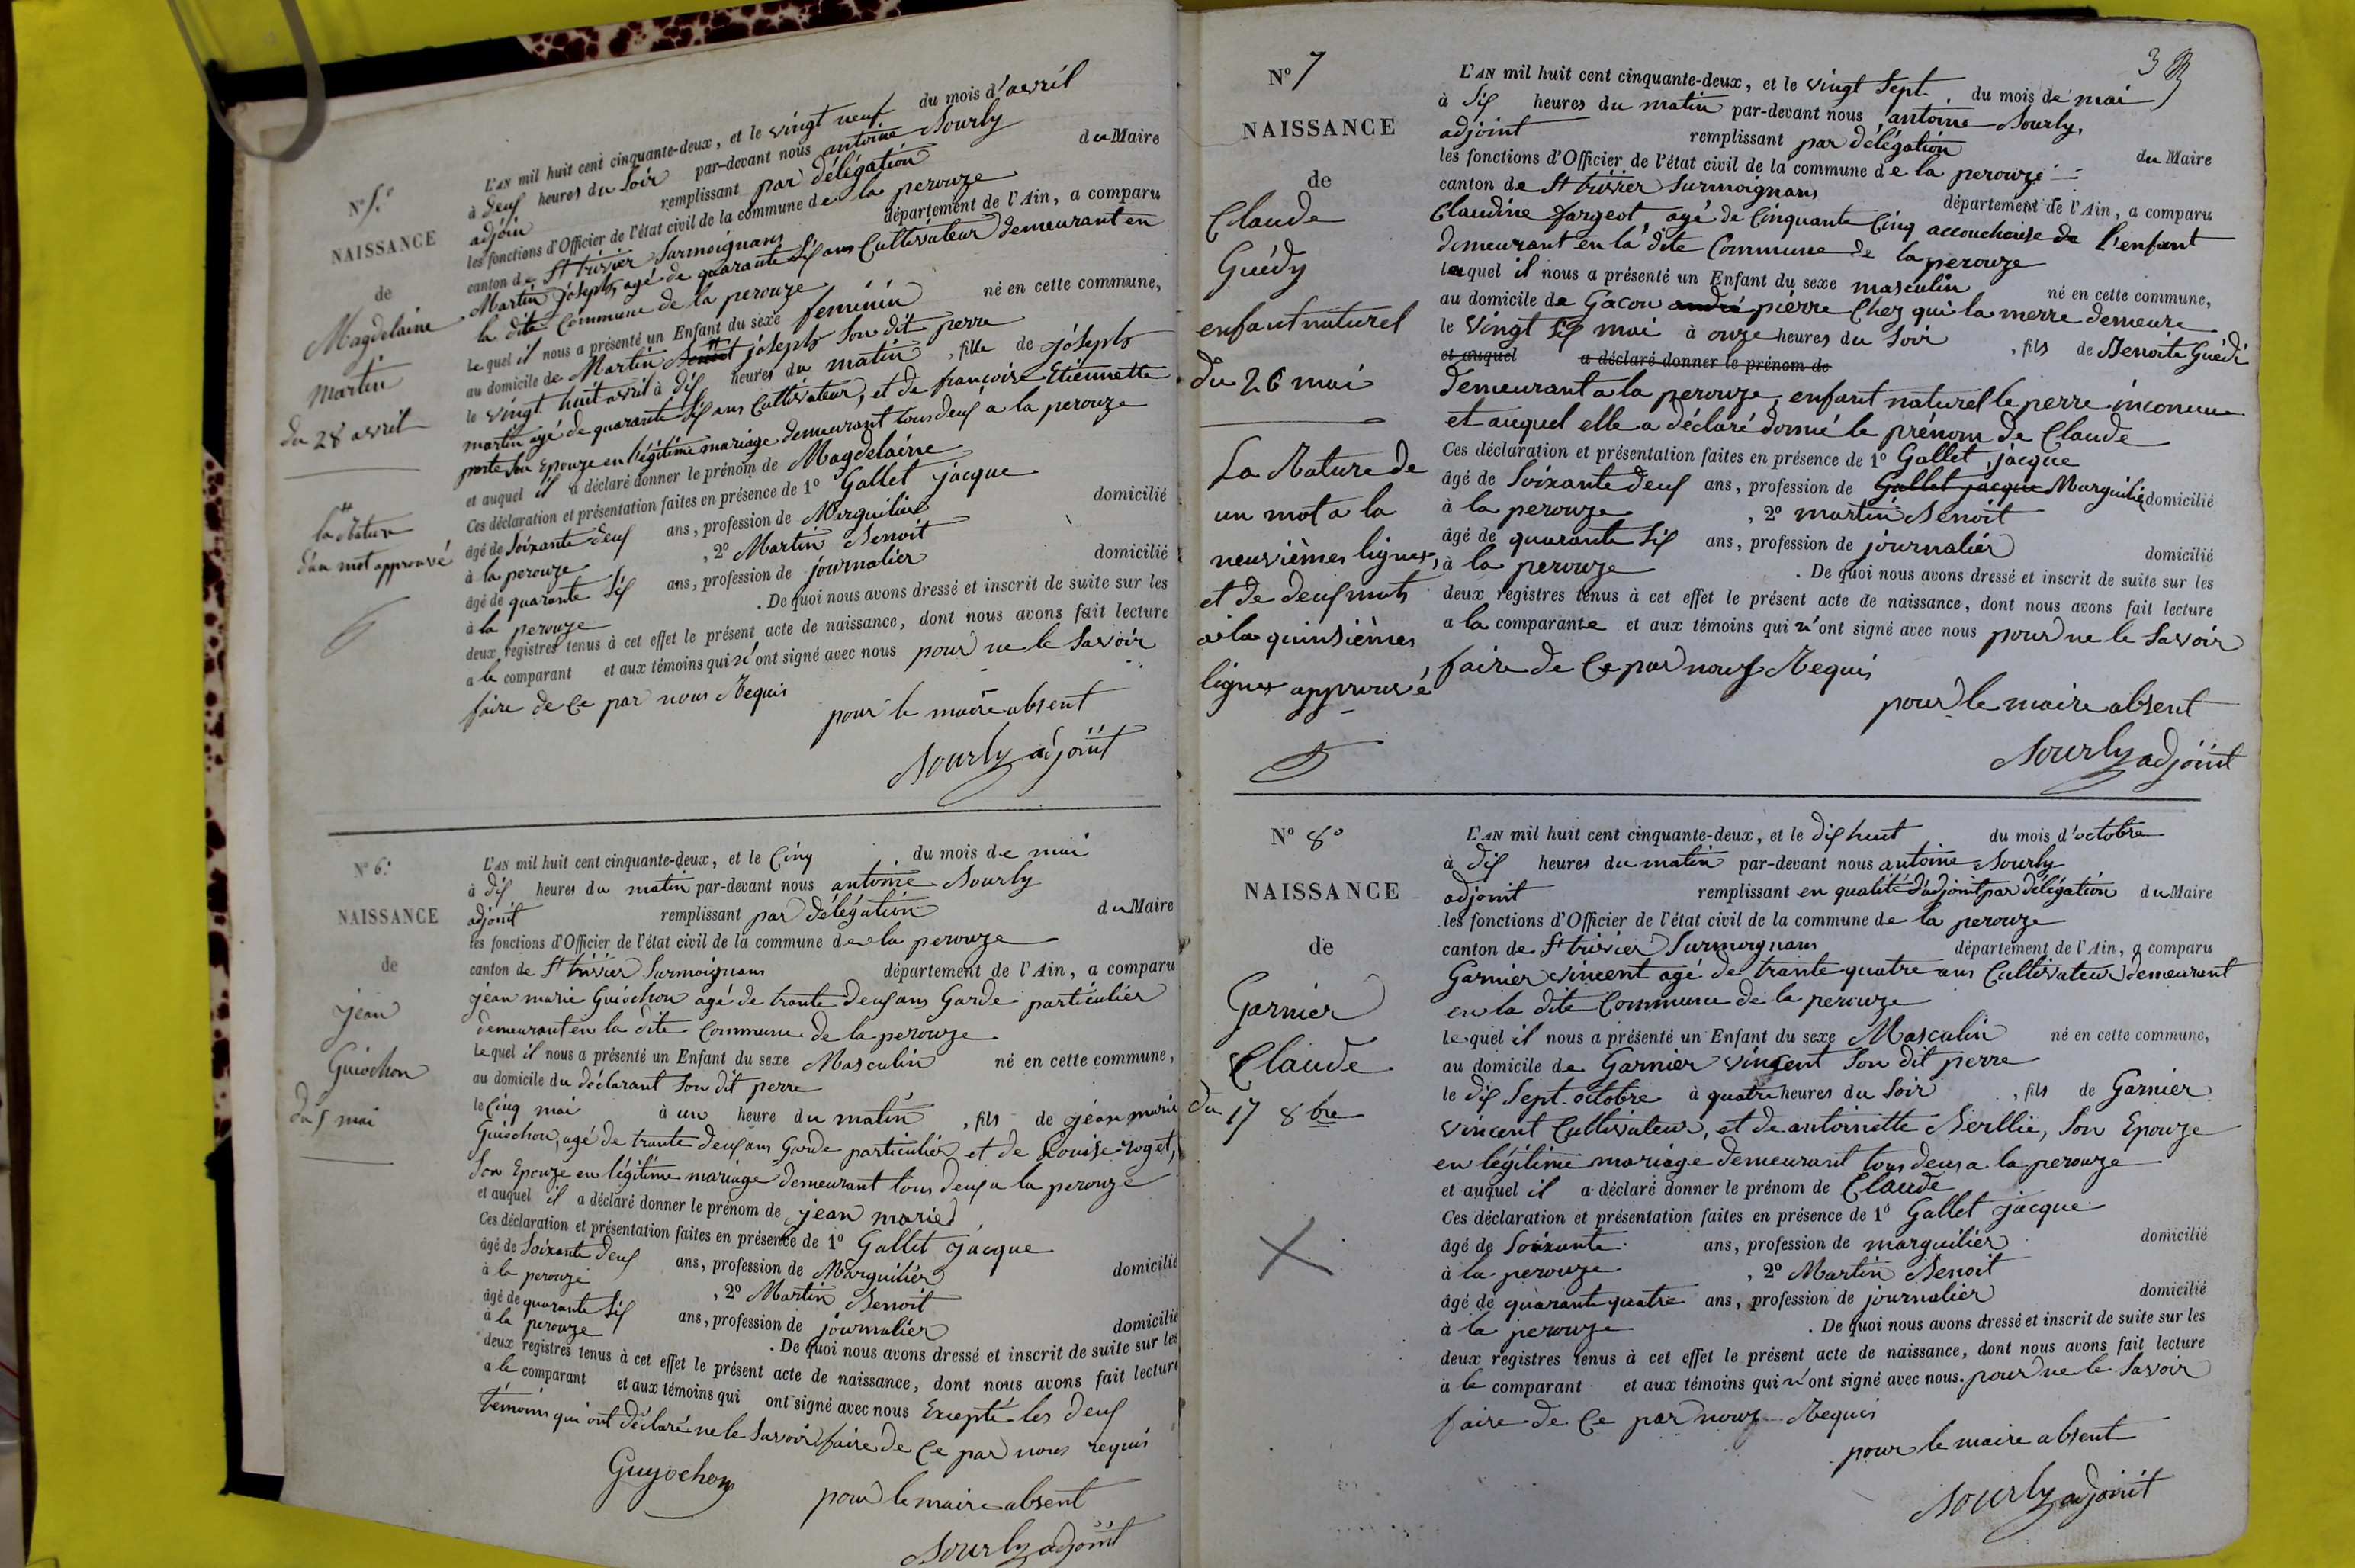 N° 5.°
NAISSANCE
de
Magdelaine
Martin
du 28 avril
la Rature
d'un mot approuvé
L'AN mil huit cent cinquante-deux, et le vingt neuf du mois d'avril
à deux heures du soir par-devant nous antoine Sourly
adjoin remplissant par délégation du Maire
les fonctions d'Officier de l'état civil de la commune de la perouze
canton de St trivier Surmoignans département de l'Ain, a comparu
Martin joseph, agé de quarante six ans Cultivateur demeurant en
la dite Commune de la perouze
lequel il nous a présenté un Enfant du sexe feminin né en cette commune,
au domicile de Martin Benoit joseph Son dit perre
le vingt huit avril à dix heures du matin, fille de joseph
martin agé de quarante six ans Cultivateur, et de françoise Etiennette
porte Son Epouze en légitime mariage demeurant tous deux a la perouze
et auquel il a déclaré donner le prénom de Magdelaine
Ces déclaration et présentation faites en présence de 1° Gallet jacque
âgé de Soixante deux ans, profession de Merguilier domicilié
à la perouze, 2° Martin Benoit
âgé de quarante Six ans, profession de journalier domicilié
à la perouze. De quoi nous avons dressé et inscrit de suite sur les
deux registres tenus à cet effet le présent acte de naissance, dont nous avons fait lecture
a le comparant et aux témoins qui n'ont signé avec nous pour ne le Savoir
faire de Ce par nous Requis
pour le maire absent
Sourly adjoint
N° 6.°
NAISSANCE
de
jean
Guiochon
du 5 mai
L'AN mil huit cent cinquante-deux, et le Cinq du mois de mai
à dix heures du matin par-devant nous antoine Sourly
adjoint remplissant par délégation du Maire
les fonctions d'Officier de l'état civil de la commune de la perouze
canton de St trivier Surmoignans département de l'Ain, a comparu
jean marie Guiochon agé de trante deux ans Garde particulier
demeurant en la dite Commune de la perouze
lequel il nous a présenté un Enfant du sexe Masculin né en cette commune,
au domicile du déclarant Son dit perre
le Cinq mai à un heure du matin, fils de jean marie
Guiochon, agé de trante deux ans Garde particulier et de Louise roget,
Son Epouze en légitime mariage demeurant tous deux a la perouze
et auquel il a déclaré donner le prénom de jean marie
Ces déclaration et présentation faites en présence de 1° Gallet jacque
âgé de Soixante deux ans, profession de Marguilier domicilié
à la perouze, 2° Martin Benoit
âgé de quarante Six ans, profession de journalier domicilié
à la perouze. De quoi nous avons dressé et inscrit de suite sur les
deux registres tenus à cet effet le présent acte de naissance, dont nous avons fait lecture
a le comparant et aux témoins qui ont signé avec nous Excepté les deux
témoins qui ont déclaré ne le Savoir faire de Ce par nous requis
Guyochon
pour le maire absent
Sourly adjoint
3
N° 7
NAISSANCE
de
Claude
Guédy
enfant naturel
du 26 mai
La Rature de
un mot a la
neuvièmes lignes,
et de deux mots
à la quinsièmes
lignes approuvé
L'AN mil huit cent cinquante-deux, et le vingt Sept du mois de mai
à Six heures du matin par-devant nous antoine Sourly,
adjoint remplissant par délégation du Maire
les fonctions d'Officier de l'état civil de la commune de la perouze
canton de St trivier Surmoignans département de l'Ain, a comparu
Claudine fargeot, agé de Cinquante Cinq accoucheuse de l'enfant
demeurant en la dite Commune de la perouze
laquel il nous a présenté un Enfant du sexe masculin né en cette commune,
au domicile de Gacon andré pierre Chez qui la merre demeure
le Vingt Six mai à onze heures du Soir, fils de Benoite Guédi
et auquel a déclaré donner le prénom de
demeurant a la perouze, enfant naturel le perre inconnu
et auquel elle a déclaré donné le prénom de Claude
Ces déclaration et présentation faites en présence de 1° Gallet, jacque
âgé de Soixante deux ans, profession de Gallet jacque Marguilié domicilié
à la perouze, 2° martin Benoit
âgé de quarante Six ans, profession de journalier domicilié
à la perouze. De quoi nous avons dressé et inscrit de suite sur les
deux registres tenus à cet effet le présent acte de naissance, dont nous avons fait lecture
a la comparante et aux témoins qui n'ont signé avec nous pour ne le Savoir
faire de Ce par nous Requis
pour le maire absent
Sourly adjoint
N° 8°
NAISSANCE
de
Garnier
Claude
du 17 8bre
L'AN mil huit cent cinquante-deux, et le dix huit du mois d'octobre
à dix heures du matin par-devant nous antoine Sourly
adjoint remplissant en qualité d'adjoint par délégation du Maire
les fonctions d'Officier de l'état civil de la commune de la perouze
canton de St trivier Surmoignans département de l'Ain, a comparu
Garnier vincent agé de trante quatre ans Cultivateur demeurant
en la dite Commune de la perouze
lequel il nous a présenté un Enfant du sexe Masculin né en cette commune,
au domicile de Garnier vincent Son dit perre
le dix Sept octobre à quatre heures du Soir, fils de Garnier
vincent Cultivateur, et de antoinette Berllie, Son Epouze
en légitime mariage demeurant tous deux a la perouze
et auquel il a déclaré donner le prénom de Claude
Ces déclaration et présentation faites en présence de 1° Gallet jacque
âgé de Soixante ans, profession de marguilier domicilié
à la perouze, 2° Martin Benoit
âgé de quarante quatre ans, profession de journalier domicilié
à la perouze. De quoi nous avons dressé et inscrit de suite sur les
deux registres tenus à cet effet le présent acte de naissance, dont nous avons fait lecture
a le comparant et aux témoins qui n'ont signé avec nous. pour ne le Savoir
faire de Ce par nous Requis
pour le maire absent
Sourly adjoint